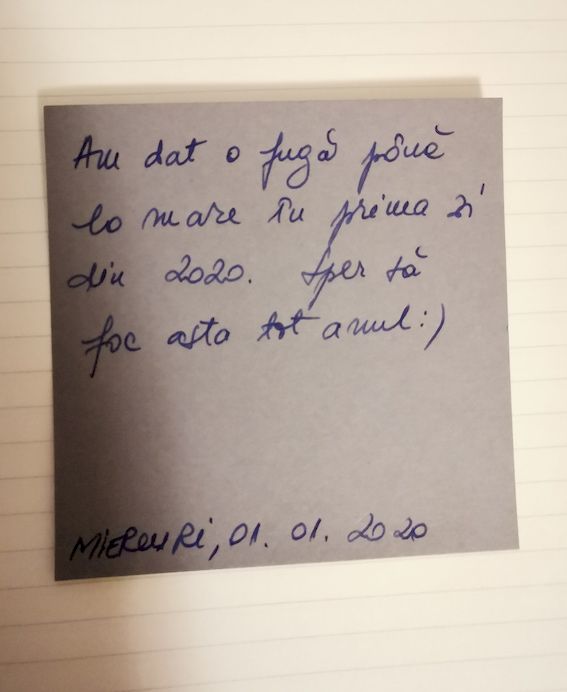 Am dat o fugă până
la mare în prima zi
din 2020. Sper să
fac asta tot anul :)
MiERCURi, 01. 01. 2020